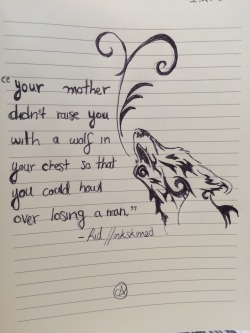 "your mother
didn't raise you
with a wolf in
your chest so that
you could howl
over losing a man."
- Aid //inkskinned